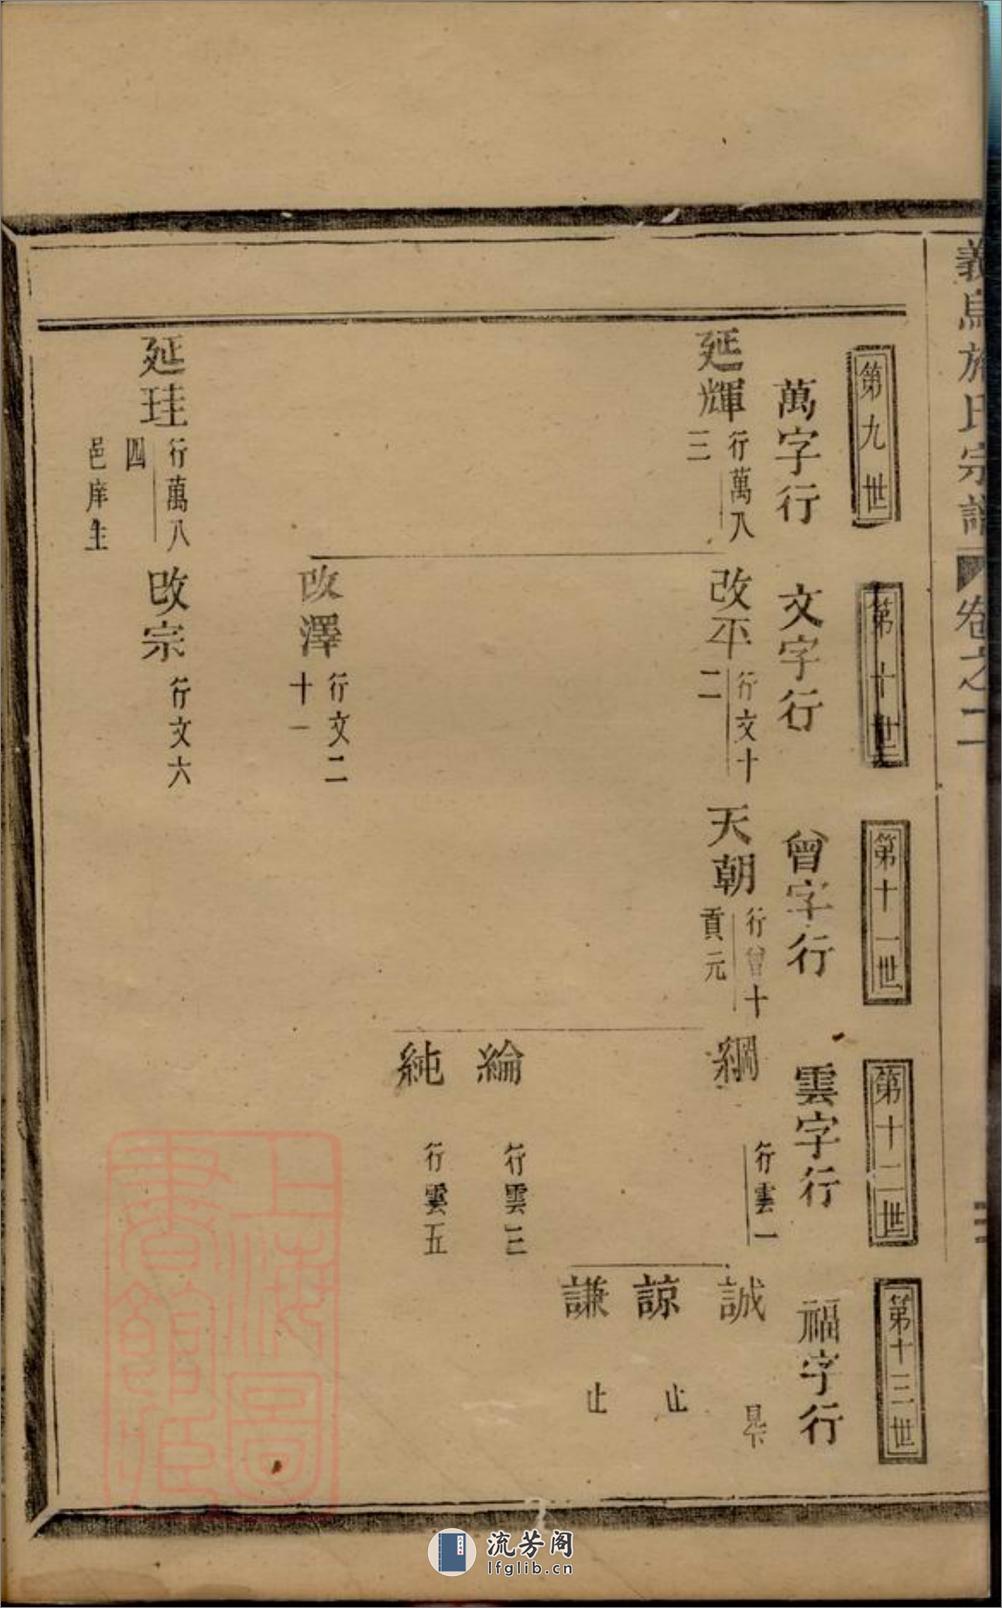 義烏施氏宗譜 卷之二
第九世
第十世
第十一世
第十二世
第十三世
萬字行
文字行
曾字行
雲字行
福字行
延輝 行萬八三
改平 行文十二
天朝 行曾十 貢元
綱 行雲一
誠
諒 止
謙 止
綸 行雲三
純 行雲五
改澤 行文二十一
延珪 行萬八四 邑庠生
改宗 行文六
上海圖書館藏
流芳阁
lfglib.cn